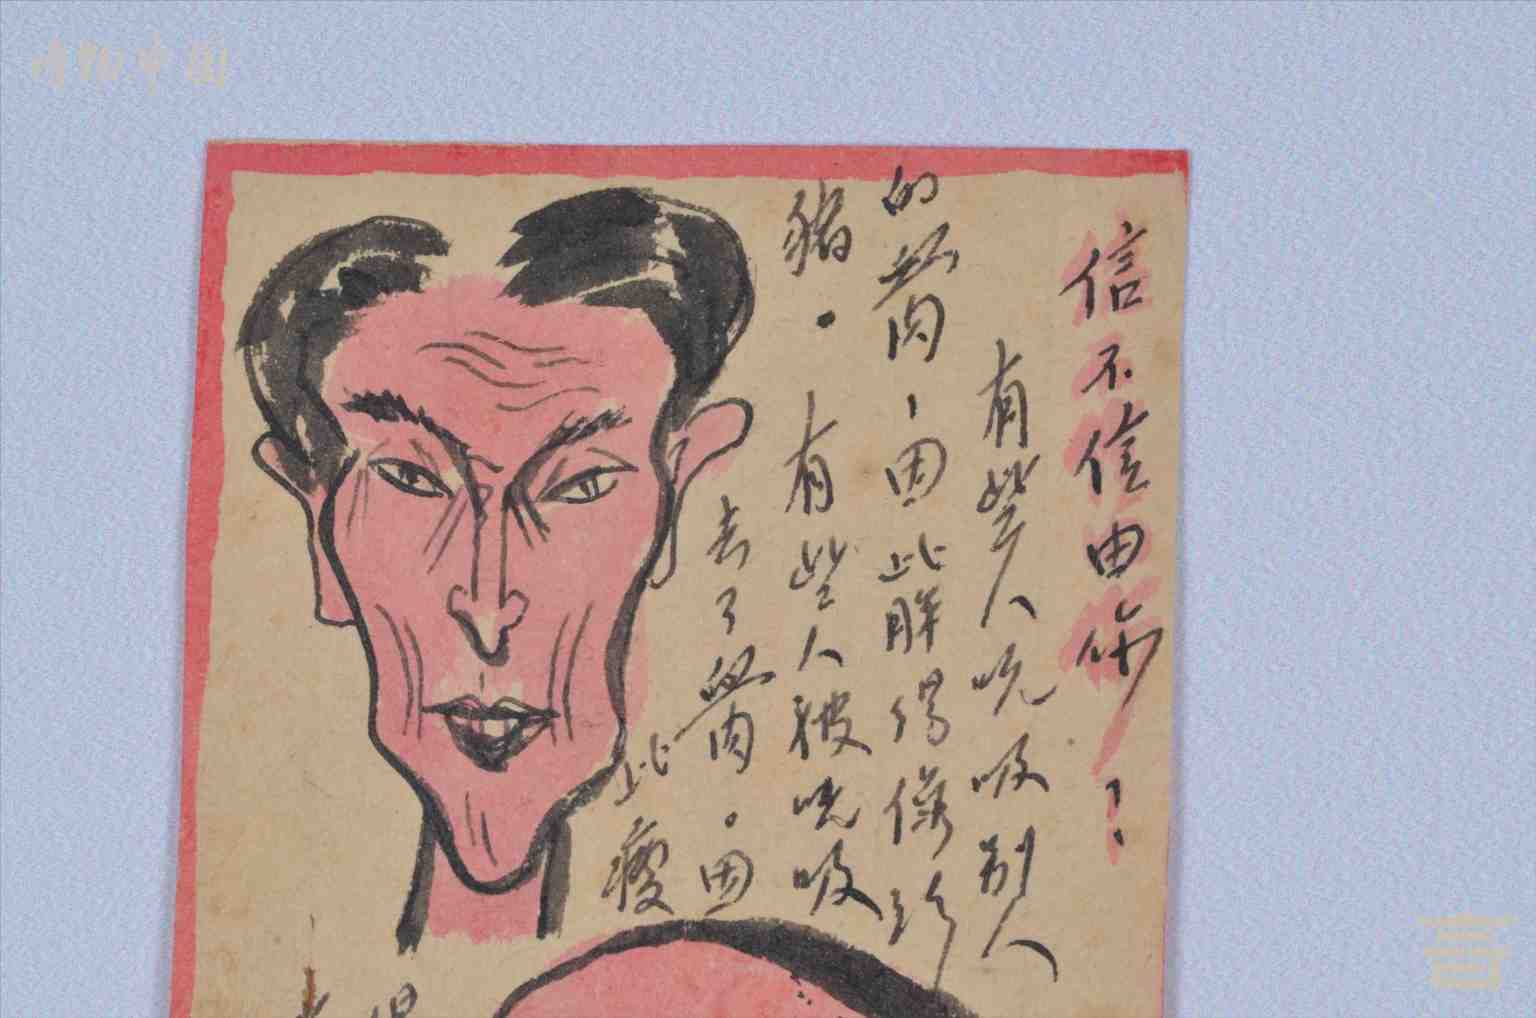 博物中国
信不信由你？
有些人吮吸别人
的肉，因此胖得像
豬．有些人被吮吸
去了肉．因
此瘦
得